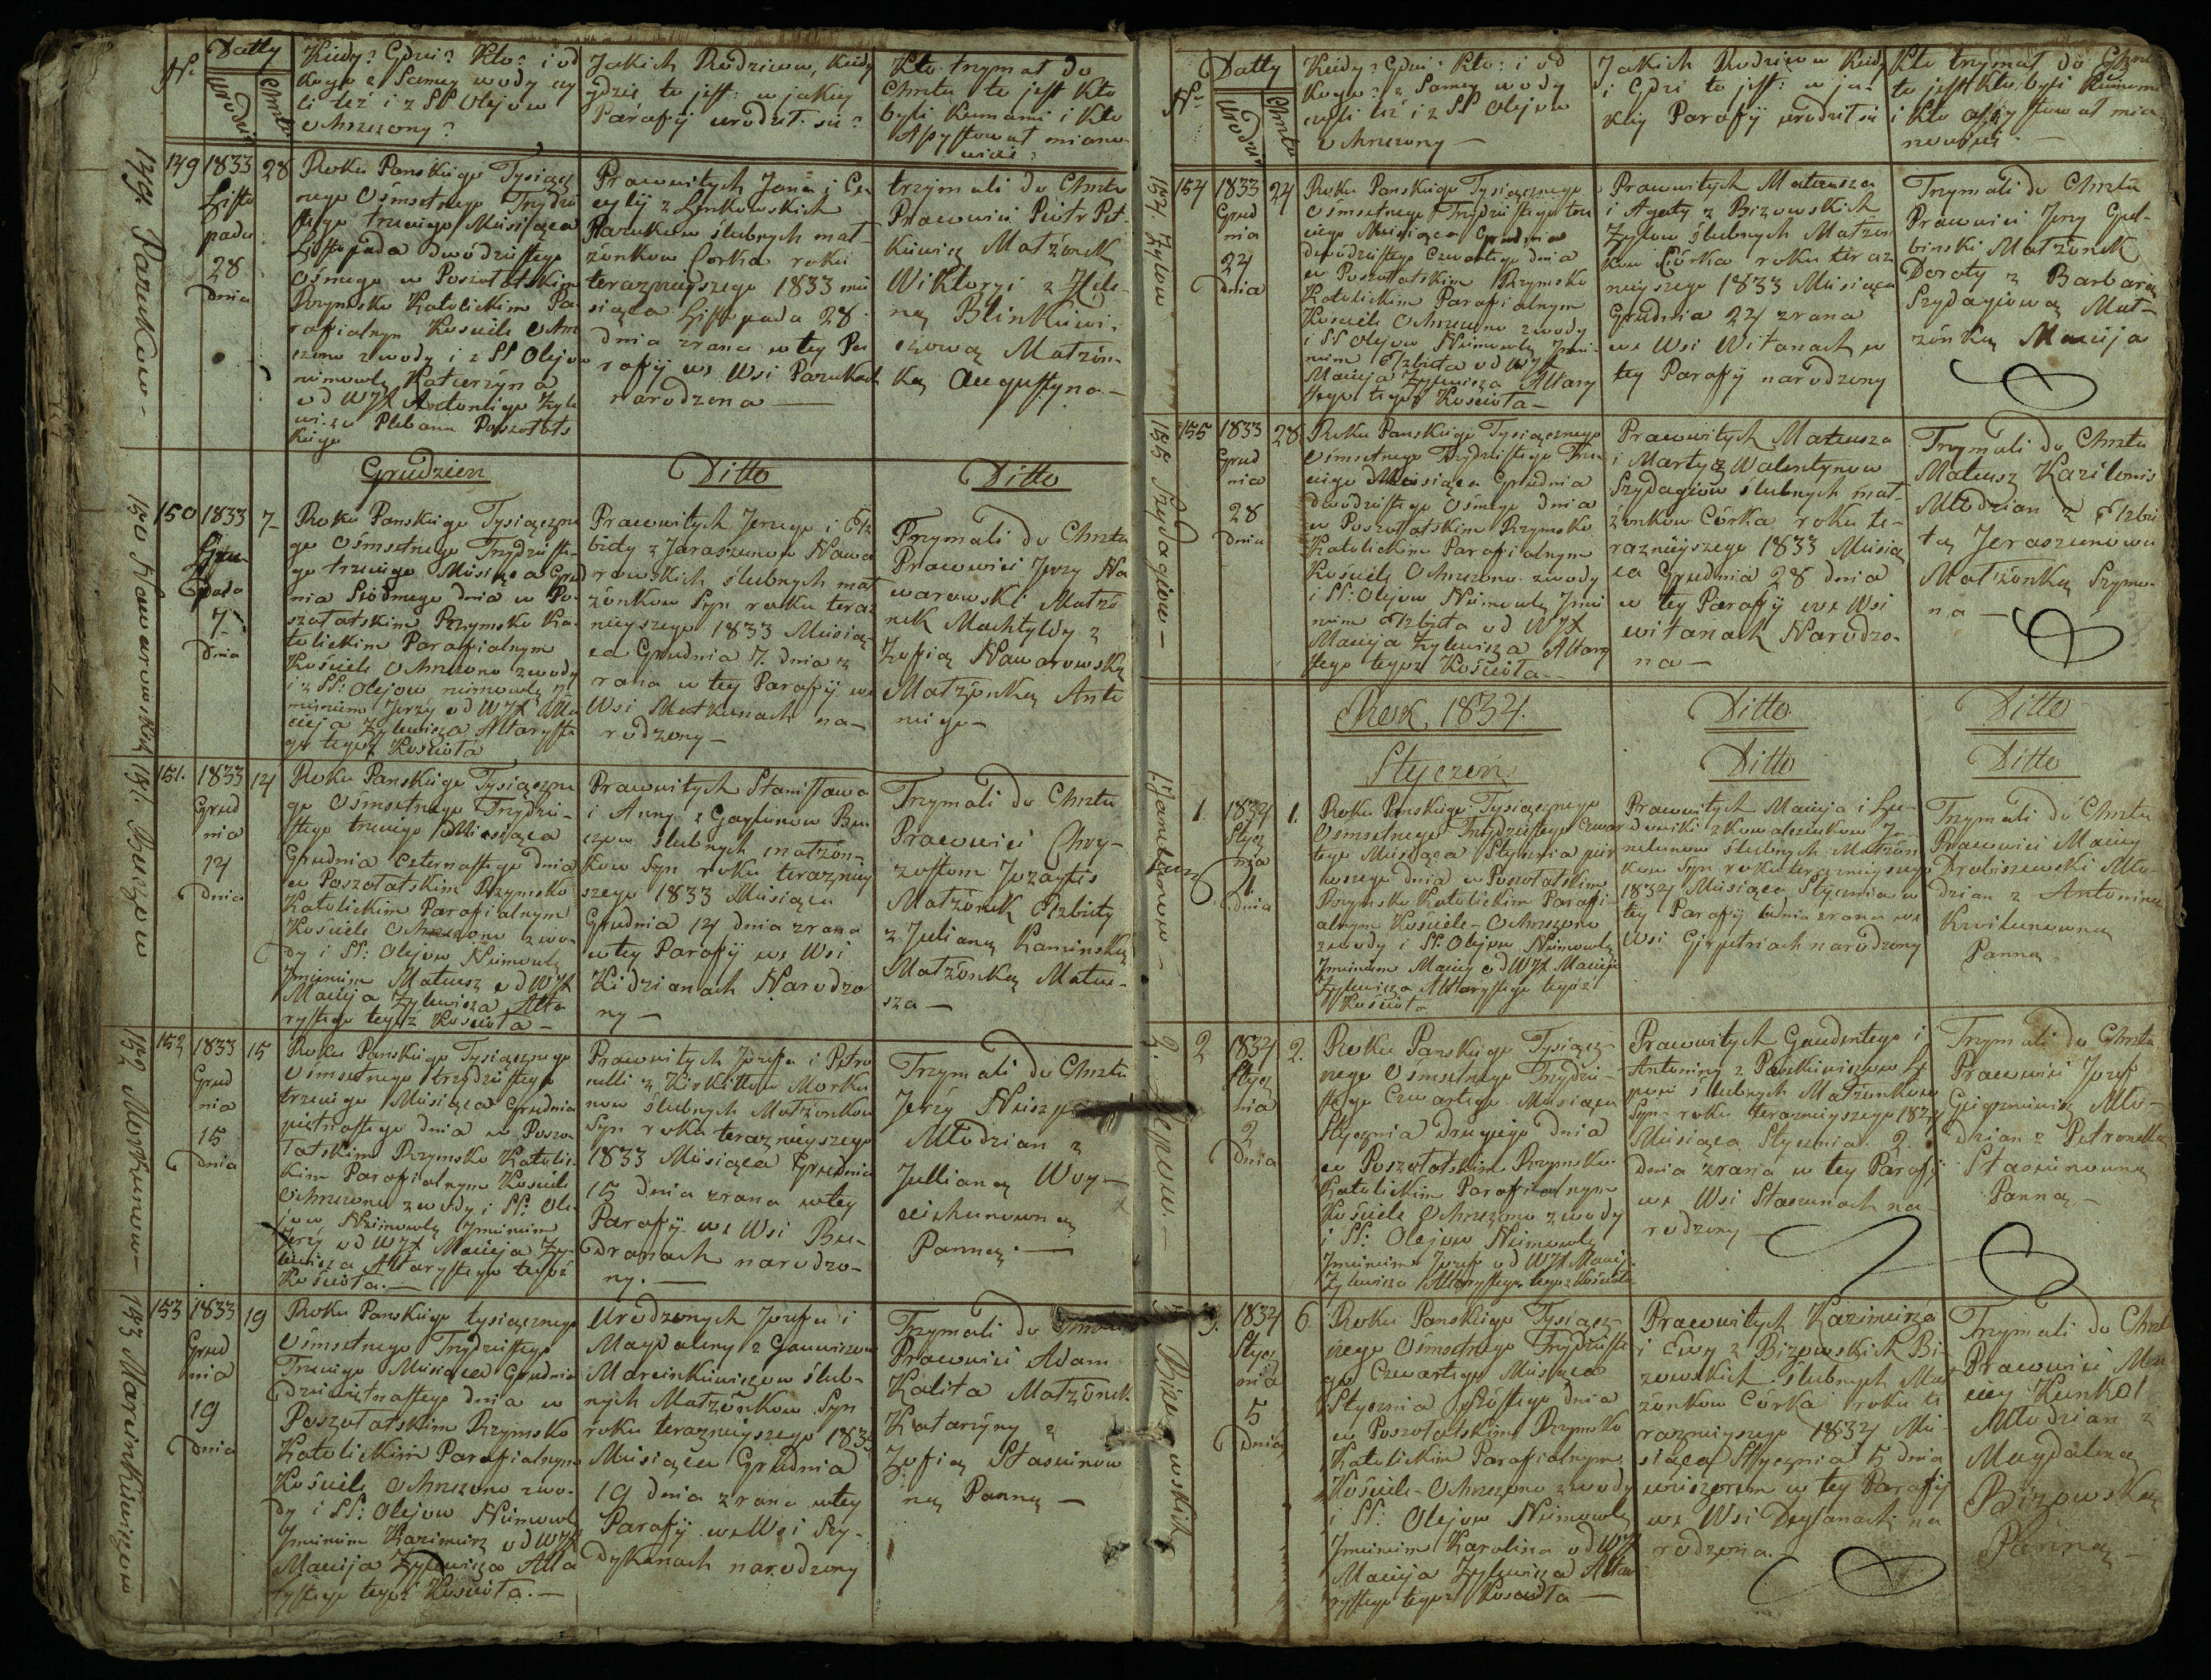 Nr.
Datty
Urodzin
Chrztu
Kiedy? Gdzie? Kto? i od
kogo z Samey wody czy
li też i z SS Olejow
Ochrzczony?
Jakich Rodzicow, kiedy
gdzie to jest: w jakiey
Parafij urodził się?
Kto trzymał do
Chrztu to jest kto
byli kumami i kto
Assystował miano-
wicie?
149 Parukow -
149
1833
Listo
pada
28
Dnia
28
Roku Panskiego Tysiącz
nego Ośmsetnego Trzydzie
stego trzeciego Miesiąca
Listopada Dwódziestego
Ośmego w Poszołatskim
Rzymsko Katolickim Pa-
rafialnym Kosciele Ochrz
czono z wody i z SS Olejow
niemowle Katarzyna
od WJX Antoniego Żyle
wicza Plebana Poszołats
kiego
Prawowitych Jana i Ce
cylij z Linkowskich
Parukow ślubnych mał-
żonkow Corka roku
teraznieyszego 1833 mie
siąca Listopada 28
dnia zrana w tey Pa
rafij we Wsi Parukach
narodzona —
trzymali do Chrztu
Prawowici Piotr Pet-
kiewicz Małżonek
Wiktoryi z Hele-
ną Blinkiewi-
czową Małżon-
ką Augustyna —
Grudzien
Ditto
Ditto
150 Nawarowskich
150
1833
Gru-
7
Dnia
7-
Roku Panskiego Tysiączne
go Ośmsetnego Trzydzieste-
go trzeciego Miesiąca Grud
nia Siodmego dnia w Po-
szołatskim Rzymsko Ka-
tolickim Parafialnym
Kościele Ochrzczono z wody
i z SS: Olejow niemowle
imieniem Jerzy od WJX Ma
cieja Żylewicza Altaryste
go tegoż Kościoła
Prawowitych Jerzego i Elż
biety z Jaraszunow Nawa
rowskich ślubnych mał
żonkow Syn roku teraz
nieyszego 1833 Miesią-
ca Grudnia 7. dnia z
rana w tey Parafij we
Wsi Matkunach na-
rodzony —
Trzymali do Chrztu
Prawowici Jerzy Na
warowski Małżo
nek Machtyldy z
Zofią Nawarowską
Małżonką Anto
niego —
151. Buczow
151.
1833
Grud
nia
14
Dnia
14
Roku Panskiego Tysiączne
go Ośmsetnego Trzydzie-
stego trzeciego Miesiąca
Grudnia czternastego dnia
w Poszołatskim Rzymsko
Katolickim Parafialnym
Kościele Ochrzczono z wo-
dy i SS: Olejow Niemowle
Jmieniem Mateusz od WJX
Macieja Żylewicza Alta
rystego tegoż Kościoła —
Prawowitych Stanisława
i Anny z Gaylunow Bu
czow ślubnych małżon-
kow Syn roku teraźniey
szego 1833 Miesiąca
Grudnia 14 dnia zrana
w tey Parafij we Wsi
Kidzianach Narodzo
ny —
Trzymali do Chrztu
Prawowici Chry-
zostom Jozaytis
Małżonek Elżbiety
z Julianą Kaminską
Małżonką Mateu-
sza —
152 Morkunow —
152
1833
Grud
nia
15
Dnia
15
Roku Panskiego Tysiącznego
Ośmsetnego trzydziestego
trzeciego Miesiąca Grudnia
pietnastego dnia w Poszo-
łatskim Rzymsko Katolic-
kim Parafialnym Kosciele
Ochrzczono z wody i SS: Ole-
jow Niemowle Jmieniem
Jerzy od WJX Macieja Ży-
lewicza Altarystego tegoż
Kościoła. —
Prawowitych Jozefa i Petro
nelli z Kirkiłłow Morku
now ślubnych Małżonkow
Syn roku teraznieyszego
1833 Miesiąca Grudnia
15 dnia zrana w tey
Parafij we Wsi Bu-
dranach narodzo-
ny. —
Trzymali do Chrztu
Jerzy
Młodzian z
Jullianą Woy-
ciechunowną
Panną. —
153 Marcinkiewiczow
153
1833
Grud
nia
19
Dnia
19
Roku Panskiego tysiącznego
Ośmsetnego Trzydziestego
Trzeciego Miesiąca Grudnia
Dziewiętnastego dnia w
Poszołatskim Rzymsko
Katolickim Parafialnym
Kościele Ochrzczono z wo-
dy i SS: Olejow Niemowle
Jmieniem Kazimierz od WJX
Macieja Żylewicza Alta
rystego tegoż Kościoła. —
Urodzonych Jozefa i
Magdaleny z
Marcinkiewiczow ślub-
nych Małżonkow Syn
roku teraznieyszego 1833
Miesiąca Grudnia
19 dnia z rana w tey
Parafij we Wsi Szy-
dyskanach narodzony
Trzymali do Chrztu
Prawowici Adam
Kalita Małżonek
Katarzyny z
Zofią Stasiunow
ną Panną —
Nr.
Datty
Urodzin
Chrztu
Kiedy? Gdzie? Kto? i od
kogo? z Samey wody
czyli też i z SS Olejow
Ochrzczony —
Jakich Rodzicow Kiedy
i Gdzie to jest: w ja-
kiey Parafij urodził się
Kto trzymał do Chrztu
to jest kto byli Kumami
i kto assystował mia
nowicie —
154 Zylow
154
1833
Grud
nia
24
Dnia
24
Roku Panskiego Tysiącznego
Ośmsetnego Trzydziestego trze
ciego Miesiąca Grudnia
dwódziestego Czwartego dnia
w Poszołatskim Rzymsko
Katolickim Parafialnym
Kościele Ochrzczono z wody
i SS Olejow Niemowle Jmie-
niem Elżbieta od WJX
Macieja Żylewicza Altary
stego tegoż Kościoła —
Prawowitych Mateusza
i Agaty z Bizowskich
Zyłow ślubnych Małżon
kow Córka roku teraz
nieyszego 1833 Miesiąca
Grudnia 24 zrana
we Wsi Witanach w
tey Parafij narodzony
Trzymali do Chrztu
Prawowici Jerzy Guł-
binski Małżonek
Doroty z Barbarą
Szydagiową Mał-
żonką Macieja
155 Szydagiow —
155
1833
Grud
nia
28
Dnia
28
Roku Panskiego Tysiącznego
Ośmsetnego Trzydziestego Trze
ciego Miesiąca Grudnia
dwodziestego Ośmego dnia
w Poszołatskim Rzymsko
Katolickim Parafialnym
Kościele Ochrzczono z wody
i SS: Olejow Niemowle Jmie
niem Elżbieta od WJX
Macieja Żylewicza Altary
stego tegoż Kościoła. —
Prawowitych Mateusza
i Marty z Walentynow
Szydagiow ślubnych mał-
żonkow Córka roku te-
raznieyszego 1833 Miesią
ca Grudnia 28 dnia
w tey Parafij we Wsi
Witanach Narodzo-
na —
Trzymali do Chrztu
Mateusz Kazilonis
Młodzian z Elżbie
tą Jeraszunową
Małżonką Szymo-
na —
Rok 1834.
Ditto
Ditto
Styczen
Ditto
Ditto
1.
1834
Stycz
nia
1.
Dnia
1.
Roku Panskiego Tysiącznego
Ośmsetnego Trzydziestego Czwar
tego Miesiąca Stycznia pier
wszego dnia w Poszołatskim
Rzymsko Katolickim Parafi-
alnym Kościele - Ochrzczono
z wody i SS: Olejow Niemowle
Jmieniem Maciey od WJX Macieja
Żylewicza Altarystego tegoż
Kościoła
Prawowitych Macieja i Lu-
dowiki z Kowaleunkow
ślubnych Małżon
kow Syn roku teraznieyszego
1834 Miesiąca Stycznia w
tey Parafij 1 dnia zrana we
Wsi narodzony
Trzymali do Chrztu
Prawowici Maciey
Drobiszewski Mło-
dzian z Antoniną
Kwilunowną
Panną
2.
2
1834
Stycz
nia
2
Dnia
2.
Roku Panskiego Tysiącz-
nego Ośmsetnego Trzydzie-
stego Czwartego Miesiąca
Stycznia Drugiego dnia
w Poszołatskim Rzymsko-
Katolickim Parafialnym
Kościele Ochrzczono z wody
i SS: Olejow Niemowle
Jmieniem Jozef od WJX Maciej.
Żylewicza Altarystego tegoż Kościoła
Prawowitych Gaudentego i
Antoniny z
ślubnych Małżonkow
Syn roku teraznieyszego 1834
Miesiąca Stycznia 2.
Dnia zrana w tey Parafij
we Wsi Staszunach na-
rodzony
Trzymali do Chrztu
Prawowici Jozef
Mło-
dzian z Petronellą
Stasiunowną
Panną —
3. Bizowskich
3.
1834
Stycz
nia
5
Dnia
6
Roku Panskiego Tysiącz-
nego Ośmsetnego Trzydzieste
go Czwartego Miesiąca
Stycznia szóstego dnia
w Poszołatskim Rzymsko
Katolickim Parafialnym
Kościele - Ochrzczono z wody
i SS: Olejow Niemowle
Jmieniem Karolina od WJX
Macieja Żylewicza Alta
rystego tegoż Kościoła —
Prawowitych Kazimierza
i Ewy z Bizowskich Bi-
zowskich ślubnych Mał
żonkow Córka roku te
raznieyszego 1834 Mie-
siąca Stycznia 5 dnia
wieczorem w tey Parafij
we Wsi na
rodzona.
Trzymali do Chrz
Prawowici Ma
ciey Kunkol
Młodzian z
Magdaleną
Bizowską
Panną —